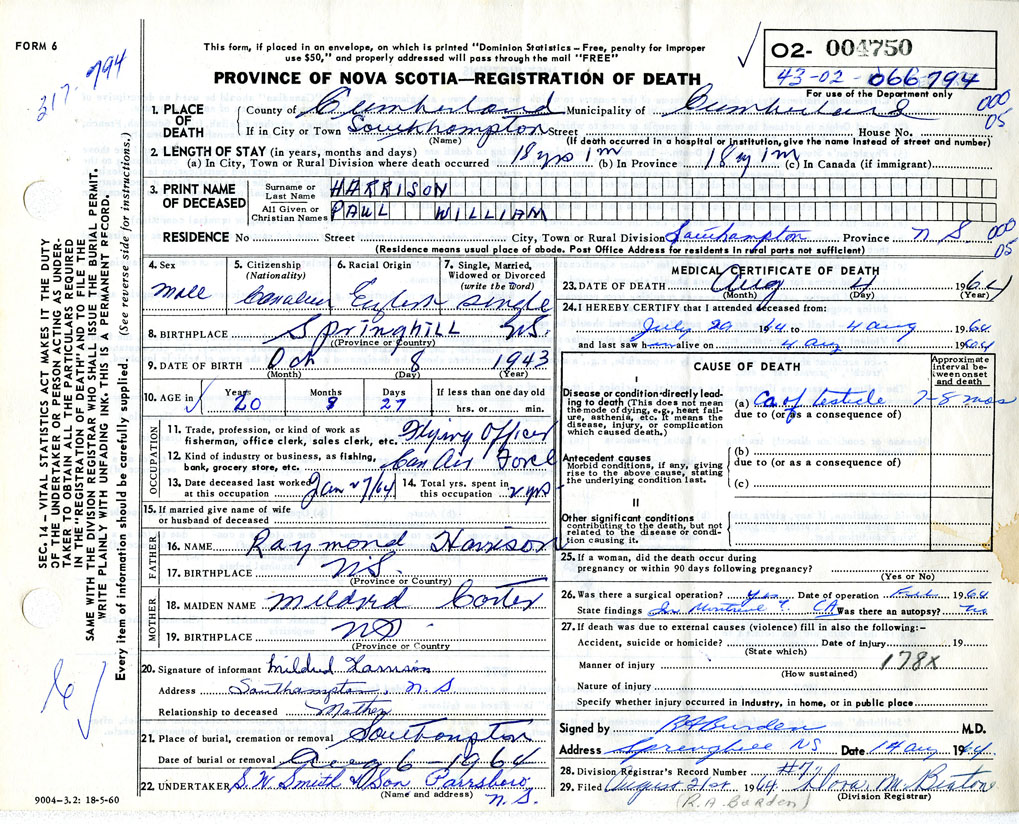 FORM 6
317-794
This form, if placed in an envelope, on which is printed "Dominion Statistics – Free, penalty for improper
use $50," and properly addressed will pass through the mail "FREE"
PROVINCE OF NOVA SCOTIA—REGISTRATION OF DEATH
02- 004750
43-02-066794
For use of the Department only
000
05
1. PLACE OF DEATH
County of Cumberland Municipality of Cumberland
If in City or Town Southhampton Street House No.
(Name) (If death occurred in a hospital or institution, give the name instead of street and number)
2. LENGTH OF STAY (in years, months and days)
(a) In City, Town or Rural Division where death occurred 18 yrs 1m (b) In Province 18 y 1m (c) In Canada (if immigrant)
3. PRINT NAME OF DECEASED
Surname or Last Name HARRISON
All Given or Christian Names PAUL WILLIAM
RESIDENCE No Street City, Town or Rural Division Southampton Province N S.
(Residence means usual place of abode. Post Office Address for residents in rural parts not sufficient)
000
05
4. Sex
male
5. Citizenship
(Nationality)
Canadian
6. Racial Origin
English
7. Single, Married,
Widowed or Divorced
(write the word)
single
8. BIRTHPLACE Springhill N.S.
(Province or Country)
9. DATE OF BIRTH Oct 8 1943
(Month) (Day) (Year)
10. AGE in
Years 20
Months 8
Days 27
If less than one day old
hrs. or min.
OCCUPATION
11. Trade, profession, or kind of work as
fisherman, office clerk, sales clerk, etc. Flying Officer
12. Kind of industry or business, as fishing,
bank, grocery store, etc. Can Air Force
13. Date deceased last worked
at this occupation Jan 27/64
14. Total yrs. spent in
this occupation 2 yrs
15. If married give name of wife
or husband of deceased
FATHER
16. NAME Raymond Harrison
17. BIRTHPLACE N.S.
(Province or Country)
MOTHER
18. MAIDEN NAME Mildred
19. BIRTHPLACE NS
(Province or Country)
20. Signature of informant Mildred Harrison
Address Southampton, N. S
Relationship to deceased Mother
21. Place of burial, cremation or removal Southampton
Date of burial or removal Aug 6 - 1964
22. UNDERTAKER S. W. Smith & Son Parrsboro
(Name and address) N. S.
9004-3.2: 18-5-60
MEDICAL CERTIFICATE OF DEATH
23. DATE OF DEATH Aug 4 1964
(Month) (Day) (Year)
24. I HEREBY CERTIFY that I attended deceased from:
July 29 1964 to 4 aug 1964
and last saw h alive on 4 Aug 1964
CAUSE OF DEATH
Approximate
interval between
onset
and death
I
Disease or condition directly leading
to death (This does not mean
the mode of dying, e.g., heart failure,
asthenia, etc. It means the
disease, injury, or complication
which caused death.)
(a) Ca of testicle 7-8 mos
due to (or as a consequence of)
Antecedent causes
Morbid conditions, if any, giving
rise to the above cause, stating
the underlying condition last.
(b)
due to (or as a consequence of)
(c)
II
Other significant conditions
contributing to the death, but not
related to the disease or condition
causing it.
25. If a woman, did the death occur during
pregnancy or within 90 days following pregnancy?
(Yes or No)
26. Was there a surgical operation? Yes Date of operation 1964
State findings CA Was there an autopsy? no
27. If death was due to external causes (violence) fill in also the following:–
Accident, suicide or homicide? Date of injury 19
(State which)
Manner of injury 178X
(How sustained)
Nature of injury
Specify whether injury occurred in industry, in home, or in public place
Signed by Burden M.D.
Address Springhill NS Date 1964
28. Division Registrar's Record Number #7
29. Filed August 21st 1964
(R.A Burden) (Division Registrar)
SEC. 14 – VITAL STATISTICS ACT MAKES IT THE DUTY
OF THE UNDERTAKER OR PERSON ACTING AS UNDERTAKER
TO OBTAIN ALL THE PARTICULARS REQUIRED
IN THE "REGISTRATION OF DEATH" AND TO FILE THE
SAME WITH THE DIVISION REGISTRAR WHO SHALL ISSUE THE BURIAL PERMIT.
WRITE PLAINLY WITH UNFADING INK. THIS IS A PERMANENT RECORD.
Every item of information should be carefully supplied. (See reverse side for instructions.)